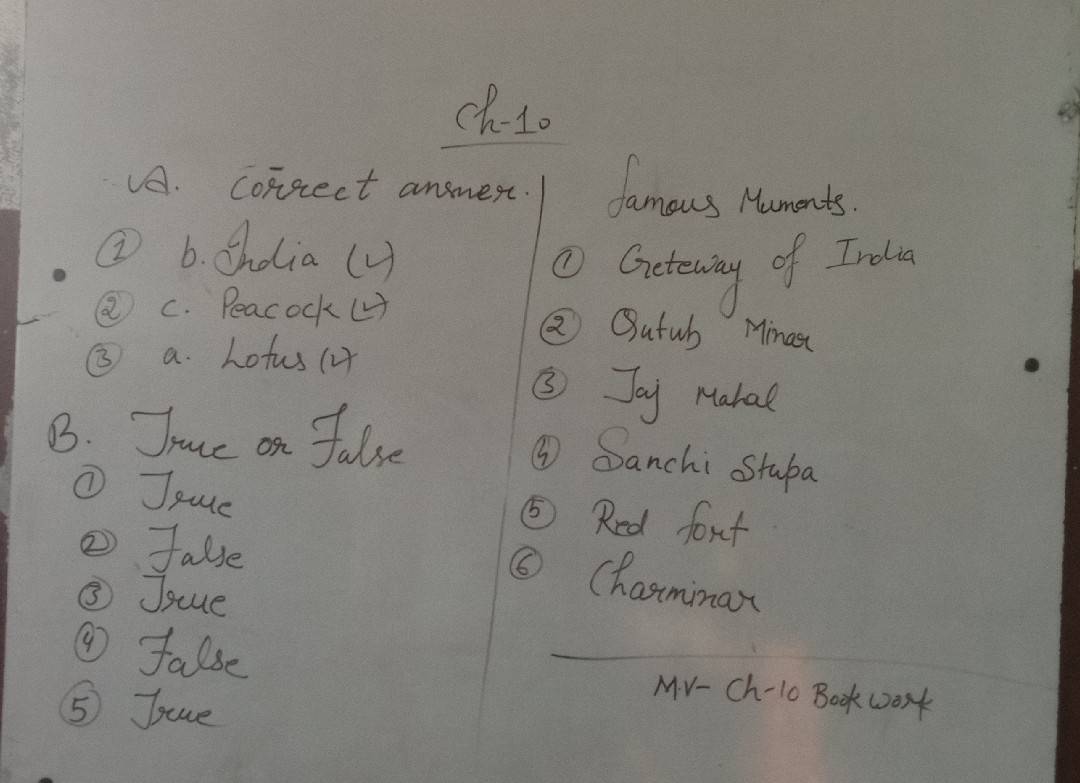 Ch-10
A. Correct answer.
① b. India (✓)
② c. Peacock (✓)
③ a. Lotus (✓)
B. True or False
① True
② False
③ True
④ False
⑤ True
famous Muments.
① Geteway of India
② Qutub Minar
③ Taj Mahal
④ Sanchi Stupa
⑤ Red fort
⑥ Charminar
M.V- Ch-10 Book work